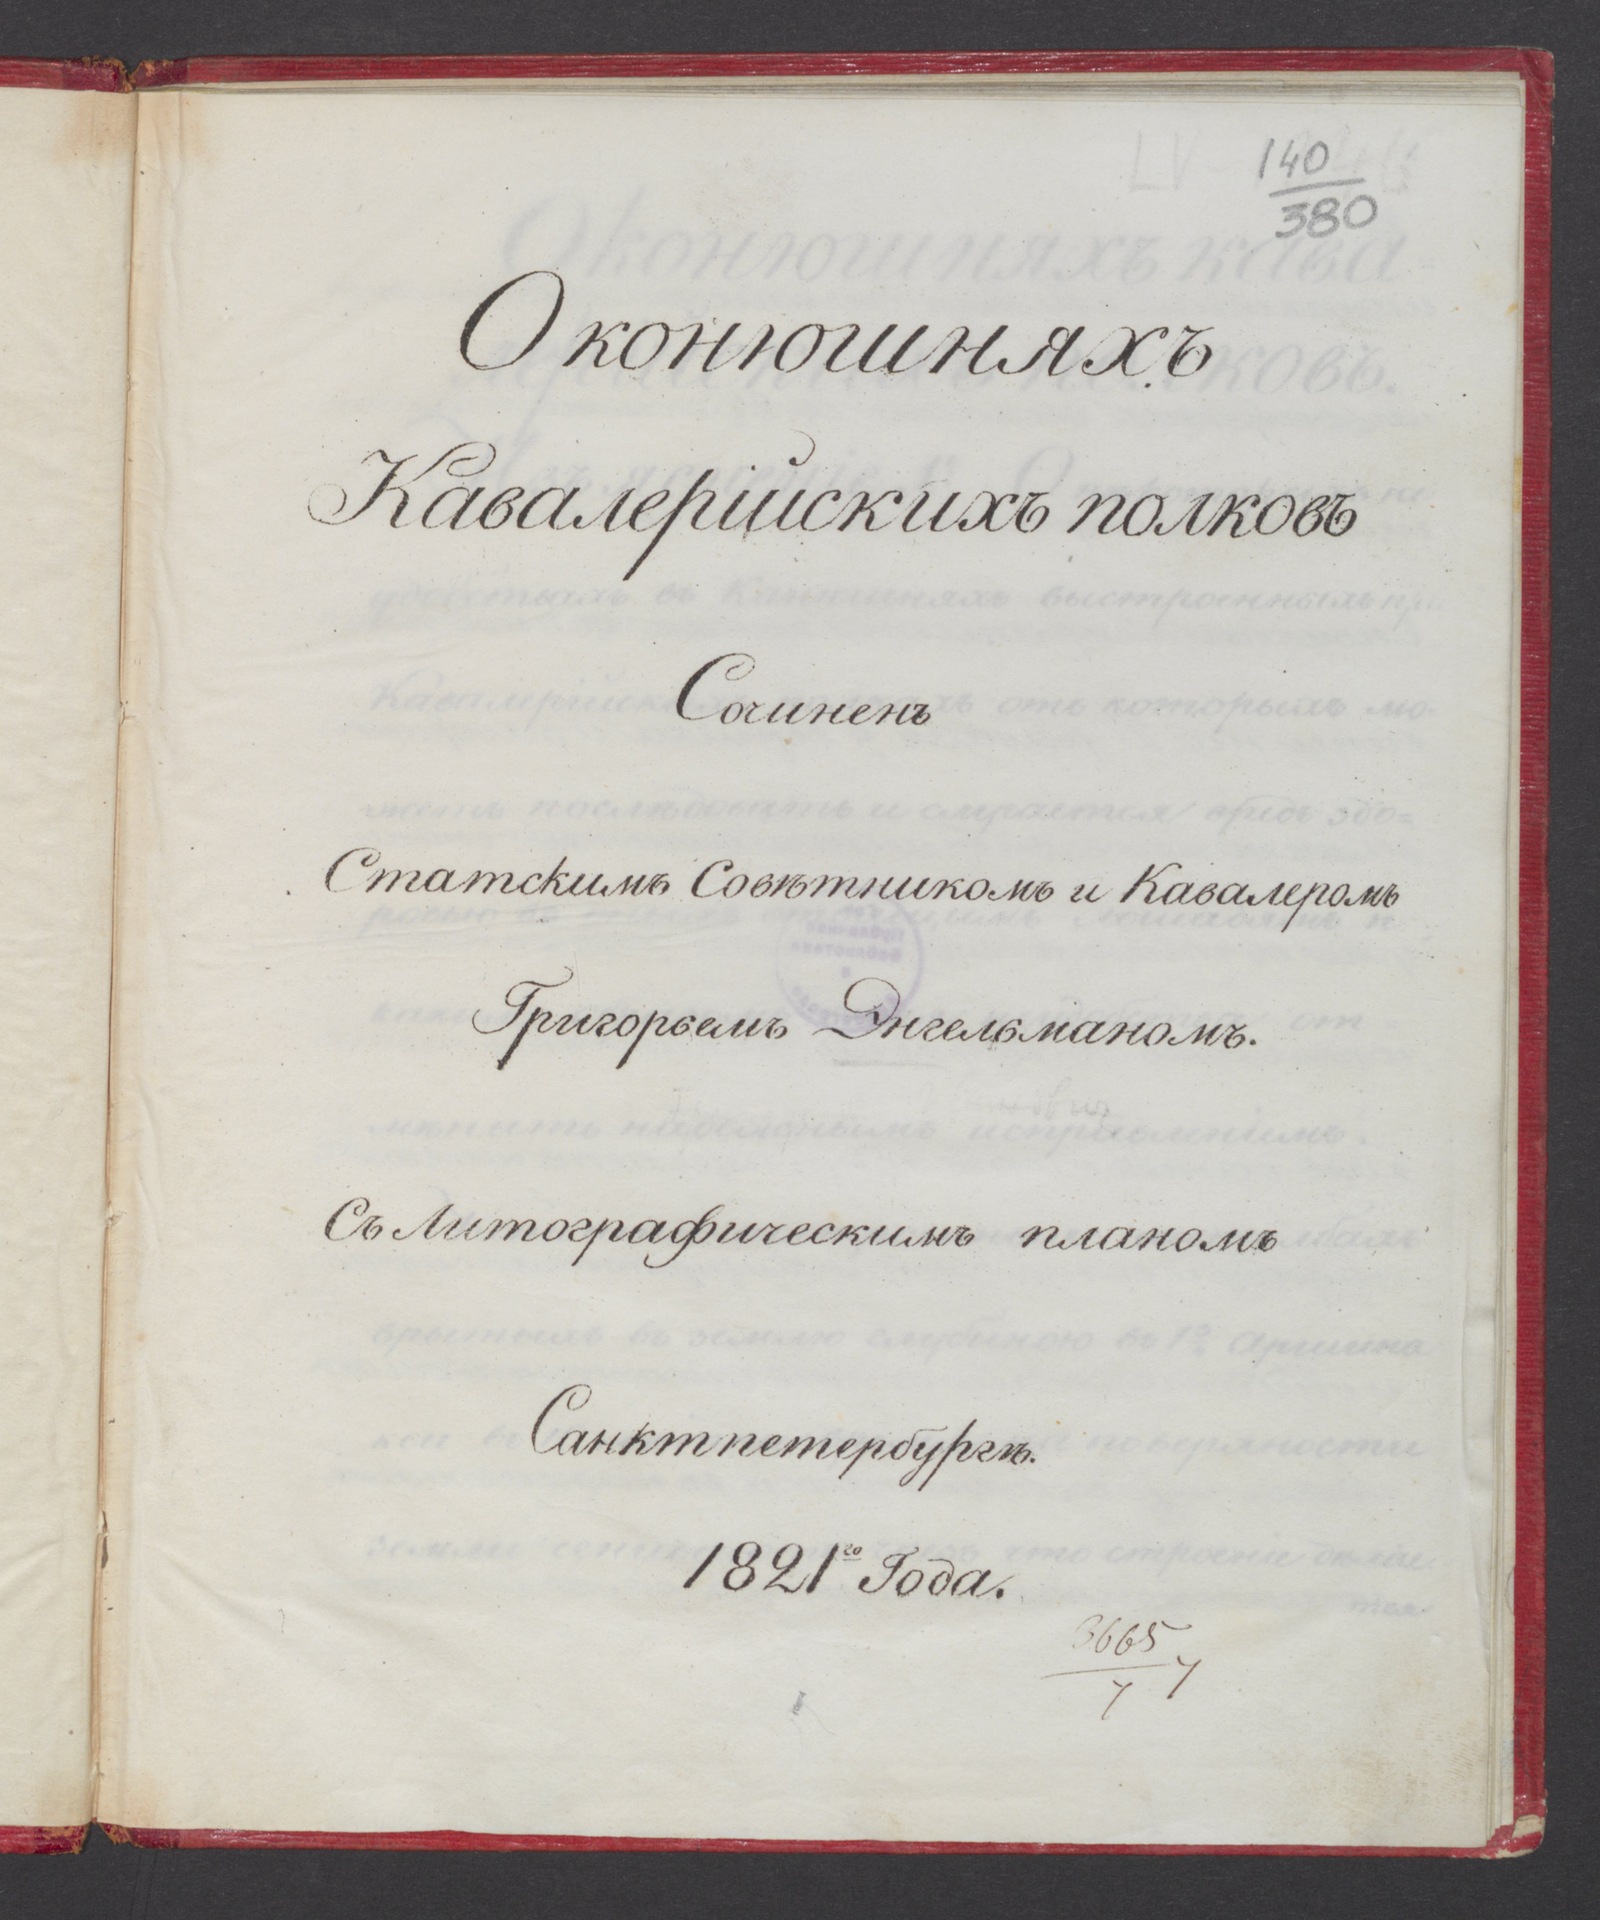 140
380
О конюшняхъ
Кавалерійскихъ полковъ
Сочиненъ
Статскимъ Совѣтникомъ и Кавалеромъ
Григорьемъ Энгельманомъ.
Съ Литографическимъ планомъ
Санктпетербургъ.
1821го Года.
3665